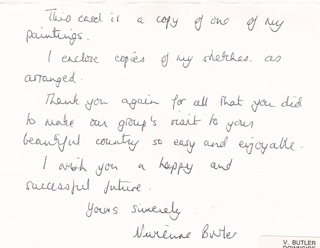 This card is a copy of one of my
paintings.
I enclose copies of my sketches as
arranged.
Thank you again for all that you did
to make our group's visit to your
beautiful country so easy and enjoyable.
I wish you a happy and
successful future.
Yours sincerely
Butler
V. BUTLER